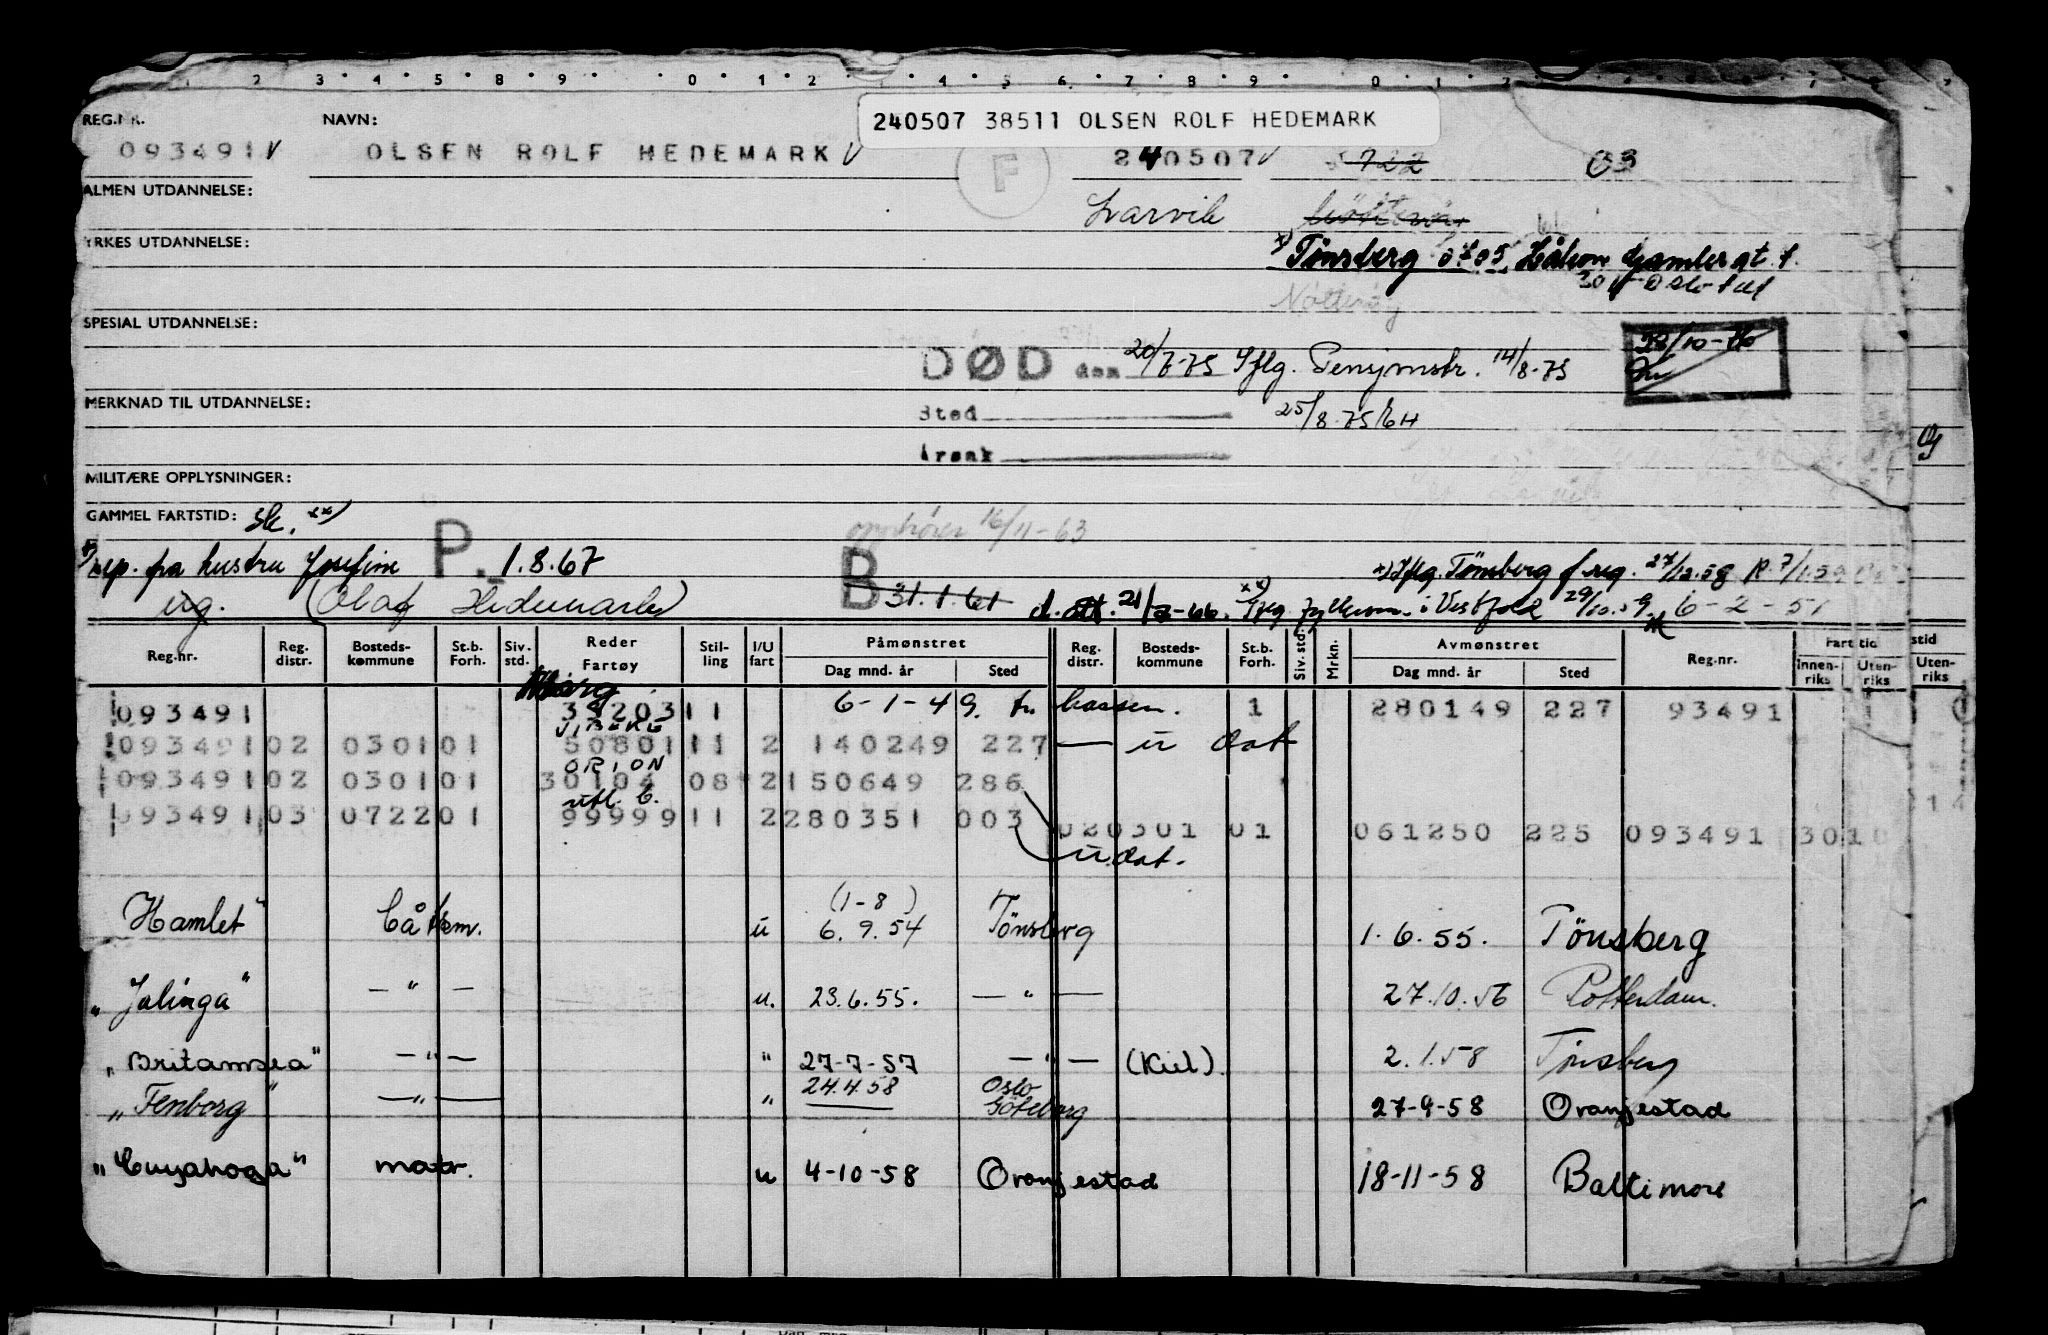 2 3 4 5 8 9 0 1 2 4 5 6 7 8 9 0 1
240507 38511 OLSEN ROLF HEDEMARK
REG.NR. NAVN:
093491 V OLSEN ROLF HEDEMARK V F 240507 V 722 03
ALMEN UTDANNELSE:
Larvik
YRKES UTDANNELSE:
x) Tönsberg 0705, Håkon Gamles gt. 1.
Nötteröy
SPESIAL UTDANNELSE:
DØD den 20/7-75 Iflg. Pensjonstr. 14/8-75 28/10-76
MERKNAD TIL UTDANNELSE:
Sted 25/8-75/GH
Årsak
MILITÆRE OPPLYSNINGER:
GAMMEL FARTSTID: Sk. xx)
opphører 16/11-63
sep. fra hustru Josefine P. 1.8.67 B x) Iflg. Tönsberg f.reg. 27/12.58
ug. (Olaf Hedemark) 31.1.61 21/2-66. xx) Iflg. fylkesm. i Vestfold 29/10.59 6-2-51
Reg.nr. Reg. distr. Bosteds- kommune St.b. Forh. Siv. std. Reder Fartøy Stil- ling I/U fart Påmønstret Dag mnd. år Sted Reg. distr. Bosteds- kommune St.b. Forh. Siv. std. Mrkn. Avmønstret Dag mnd. år Sted Reg.nr. Fartstid Innen- riks Uten- riks stid Uten- riks
093491 11 6-1-49. 1 280149 227 93491
VIBEKE
093491 02 0301 01 50801 11 2 140249 227 — u dat
ORION
093491 02 0301 01 30104 08 2 150649 286
utl. b.
093491 03 0722 01 99999 11 2 280351 003 020301 01 061250 225 093491 3010
u dat.
(1-8)
"Hamlet" båtsm. u 6.9.54 Tönsberg 1.6.55. Tönsberg
"Jalinga" — " — u. 23.6.55. — " — 27.10.56 Rotterdam.
"Britamsea" — " — " 27-7-57 — " — (Kiel). 2.1.58 Tönsberg
"Fenborg" — " — " 24.4.58 Oslo Göteborg 27-9-58 Oranjestad
"Cuyahoga" matr. u 4-10-58 Oranjestad 18-11-58 Baltimore